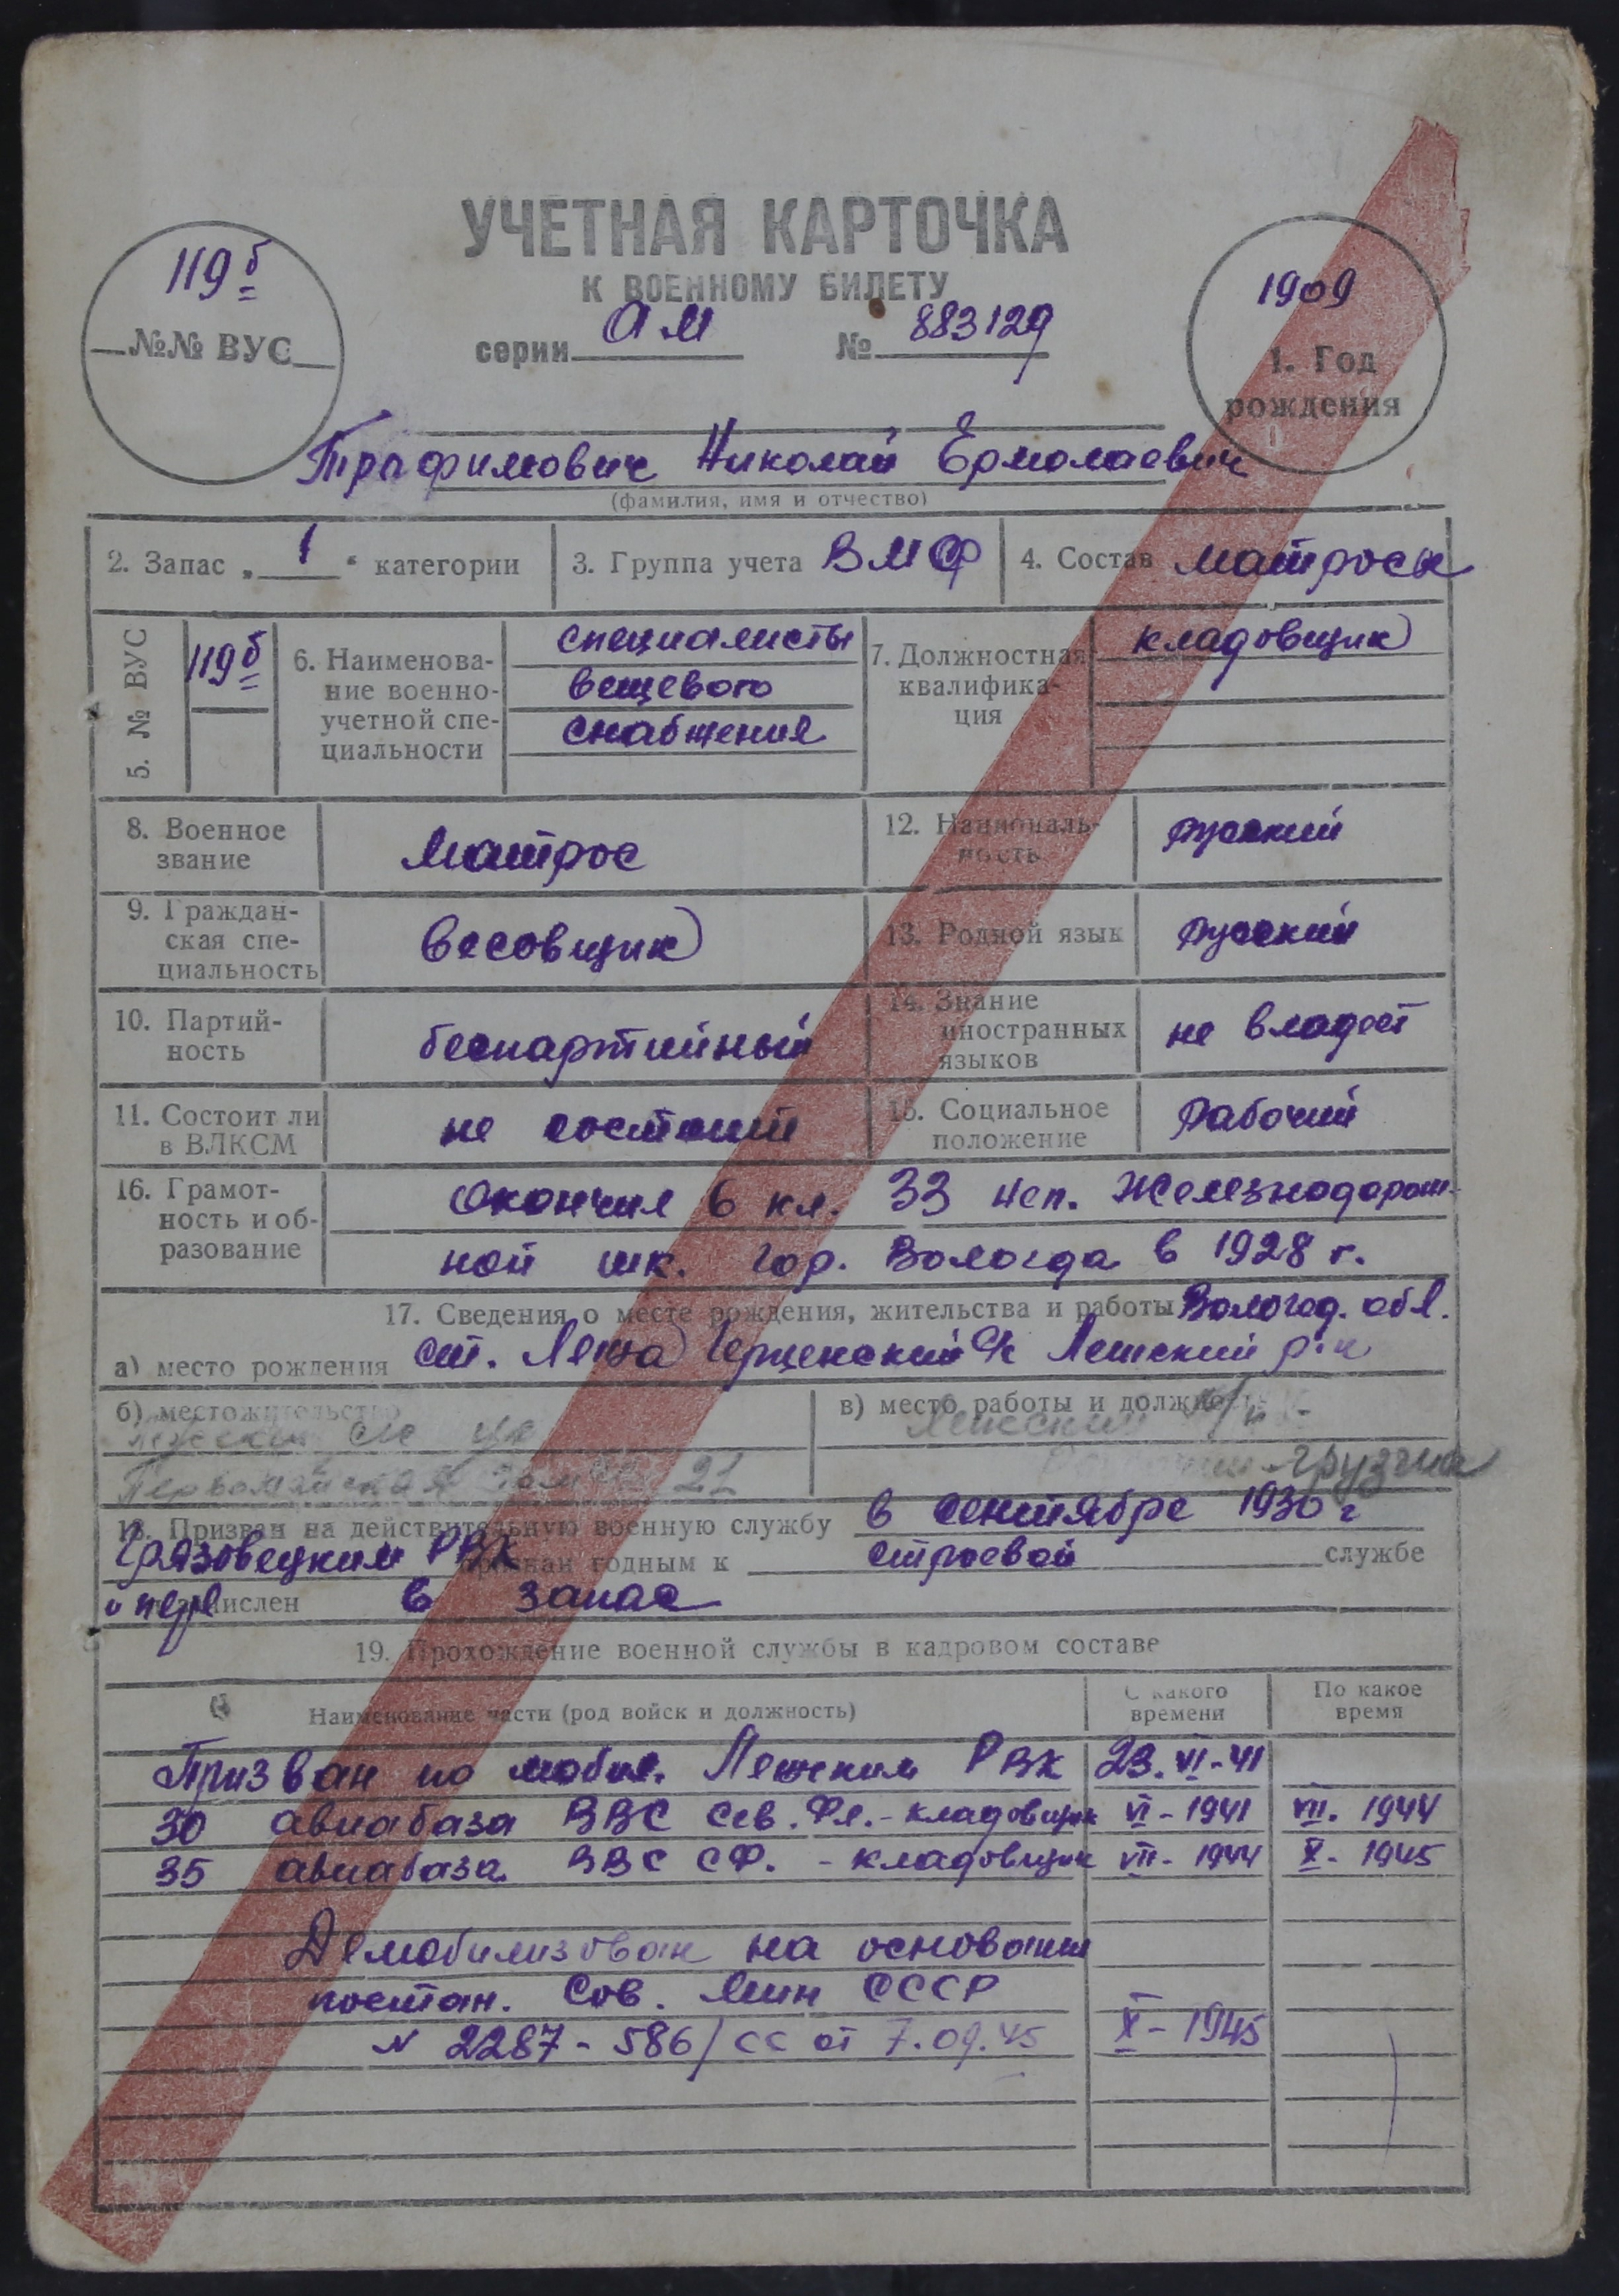 УЧЕТНАЯ КАРТОЧКА
К ВОЕННОМУ БИЛЕТУ
серии АМ № 883129
119б
№№ ВУС
1909
1. Год
рождения
Трафимович Николай Ермолаевич
(фамилия, имя и отчество)
2. Запас „1“ категории
3. Группа учета ВМФ
4. Состав матросы
5. № ВУС
119б
6. Наименова-
ние военно-
учетной спе-
циальности
специалисты
вещевого
снабжения
7. Должностная
квалифика-
ция
кладовщик
8. Военное
звание
Матрос
12. Националь-
ность
русский
9. Граждан-
ская спе-
циальность
Весовщик
13. Родной язык
русский
10. Партий-
ность
беспартийный
14. Знание
иностранных
языков
не владеет
11. Состоит ли
в ВЛКСМ
не состоит
15. Социальное
положение
Рабочий
16. Грамот-
ность и об-
разование
Окончил 6 кл. 33 неп. Железнодорож-
ной шк. гор. Вологда в 1928 г.
17. Сведения о месте рождения, жительства и работы Вологод. обл.
а) место рождения ст. Лежа Герценский с/с Лежский р-н
б) местожительство
Первомайская дом 21
в) место работы и должность
Лежский
грузчик
18. Призван на действительную военную службу в сентябре 1930 г
Грязовецким РВК признан годным к строевой службе
и пере числен в запас
19. Прохождение военной службы в кадровом составе
Наименование части (род войск и должность)
С какого
времени
По какое
время
Призван по мобил. Лежским РВК 23.VI-41
30 авиабаза ВВС Сев. Фл. - кладовщик VI-1941 VII. 1944
35 авиабаза ВВС СФ. - кладовщик VII-1944 X-1945
Демобилизован на основании
постан. Сов. Мин СССР
N 2287-586/сс от 7.09.45 X-1945